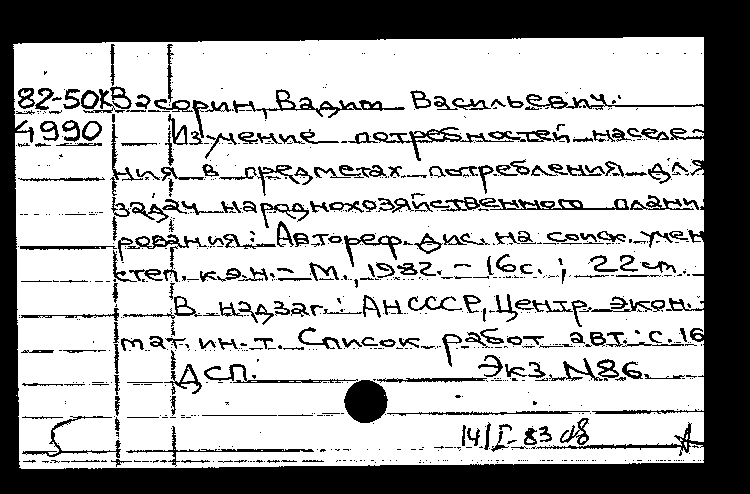 82-50К Васорин, Вадим Васильевич.
4990 Изучение потребностей населе-
ния в предметах потребления для
задач народнохозяйственного плани-
рования: Автореф. дис. на соиск. учен
степ. к.э.н. - М., 1982. - 16с.; 22см.
В надзаг.: АН СССР, Центр. экон.-
мат. ин-т. Список работ авт.: с. 16
ДСП. Экз. N86.
5 14/I-83